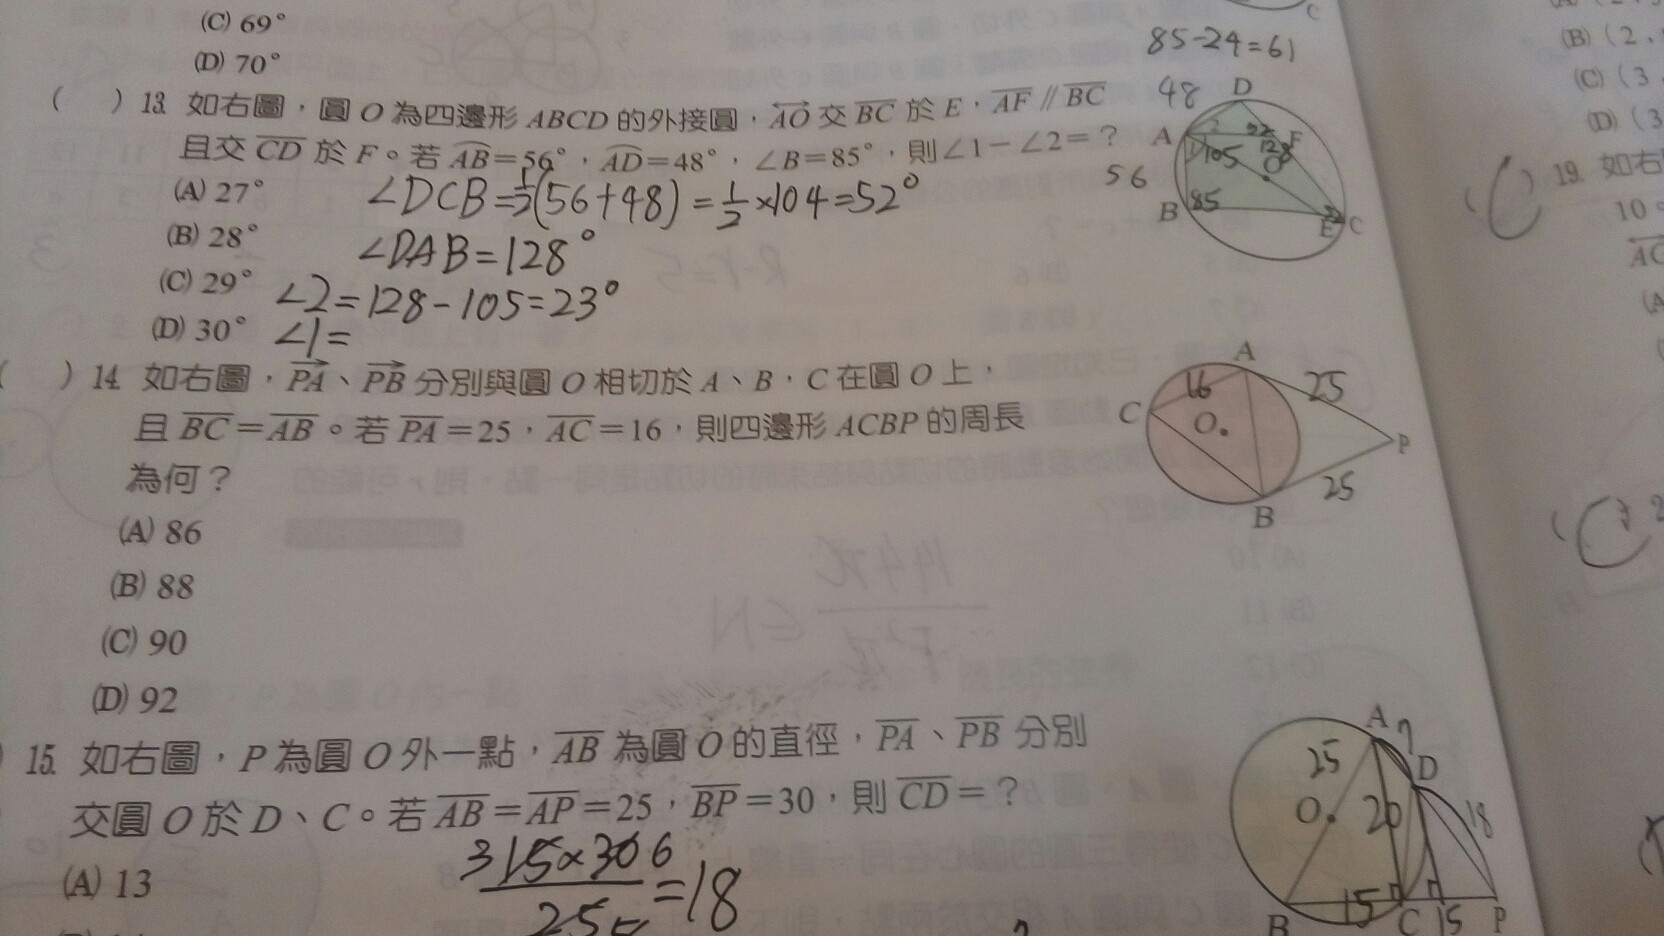 (C) 69°
(D) 70°
85-24=61
( ) 13. 如右圖，圓 O 為四邊形 ABCD 的外接圓，AO 交 BC 於 E，AF // BC
且交 CD 於 F。若 AB=56°，AD=48°，∠B=85°，則∠1-∠2=?
(A) 27°
∠DCB=½(56+48)=½×104=52°
(B) 28°
∠DAB=128°
(C) 29°
∠2=128-105=23°
(D) 30°
∠1=
48 D
A 2 F
1 105 128 O
56
B 85 E C
) 14. 如右圖，PA、PB 分別與圓 O 相切於 A、B，C 在圓 O 上，
且 BC=AB。若 PA=25，AC=16，則四邊形 ACBP 的周長
為何？
(A) 86
(B) 88
(C) 90
(D) 92
A
16 25
C O P
25
B
15. 如右圖，P 為圓 O 外一點，AB 為圓 O 的直徑，PA、PB 分別
交圓 O 於 D、C。若 AB=AP=25，BP=30，則 CD=?
(A) 13
3 15×30 6
25 5
=18
A 7
25 D
O 20 18
B 15 C 15 P
C
(B) (2,
(C) (3
(D) (3
19. 如右
10
AC
(A